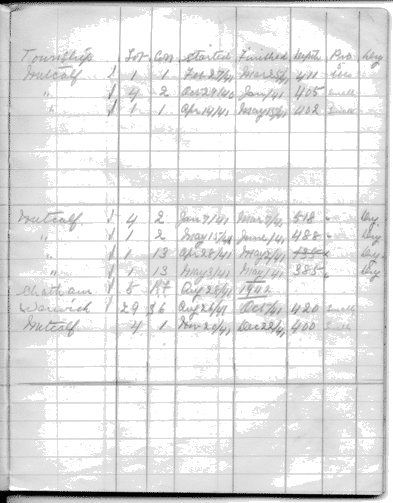 Township Lot Con Started Finished Depth Pro Dry
Metcalf √ 1 1 Feb 27/41 Mar 25/41 411
" √ 4 2 Oct 29/40 Jan/41 405 small
" √ 1 1 Apr 14/41 May 15/41 402
Metcalf √ 4 2 Jan 9/41 Mar 7/41 518 " Dry
" √ 1 2 May 15/41 June/41 488 " Dry
" √ 1 13 Apr 28/41 May 2/41 " Dry
" √ 1 13 May 3/41 May/41 385 " Dry
Chatham √ 5 Aug 28/41 1942
Warwick √ 29 Aug 26/41 Oct/41 420 small
Metcalf 4 1 Nov 20/41 Dec 22/41 400